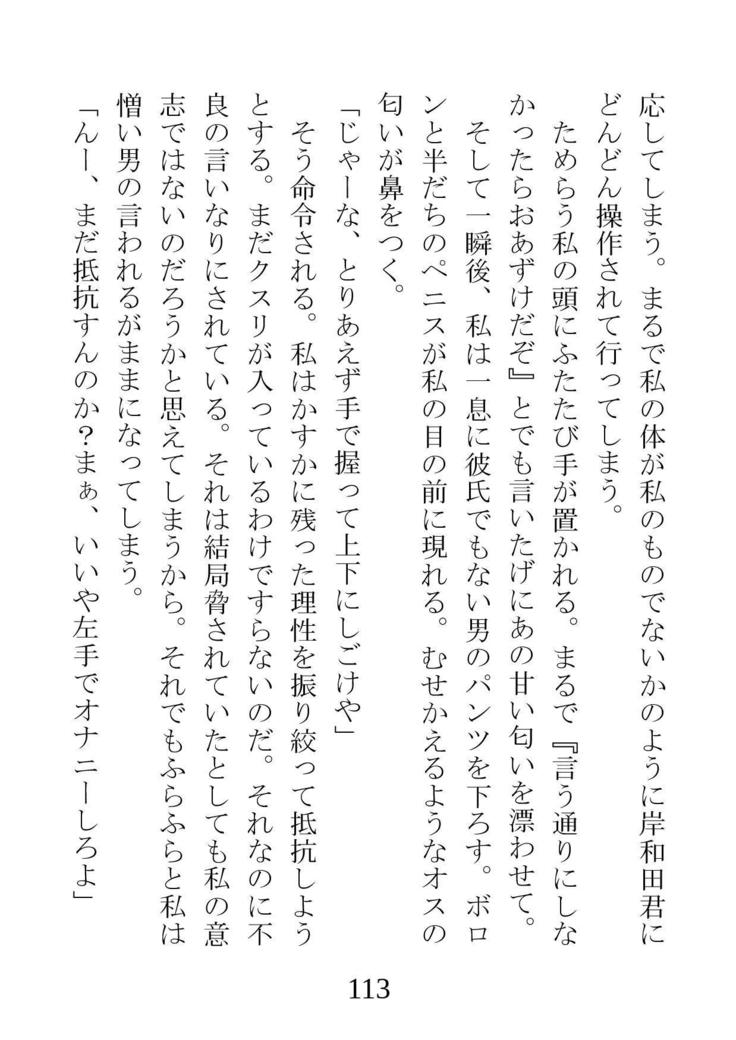 応してしまう。まるで私の体が私のものでないかのように岸和田君に
どんどん操作されて行ってしまう。
ためらう私の頭にふたたび手が置かれる。まるで『言う通りにしな
かったらおあずけだぞ』とでも言いたげにあの甘い匂いを漂わせて。
そして一瞬後、私は一息に彼氏でもない男のパンツを下ろす。ボロ
ンと半だちのペニスが私の目の前に現れる。むせかえるようなオスの
匂いが鼻をつく。
「じゃーな、とりあえず手で握って上下にしごけや」
そう命令される。私はかすかに残った理性を振り絞って抵抗しよう
とする。まだクスリが入っているわけですらないのだ。それなのに不
良の言いなりにされている。それは結局脅されていたとしても私の意
志ではないのだろうかと思えてしまうから。それでもふらふらと私は
憎い男の言われるがままになってしまう。
「んー、まだ抵抗すんのか？まぁ、いいや左手でオナニーしろよ」
113